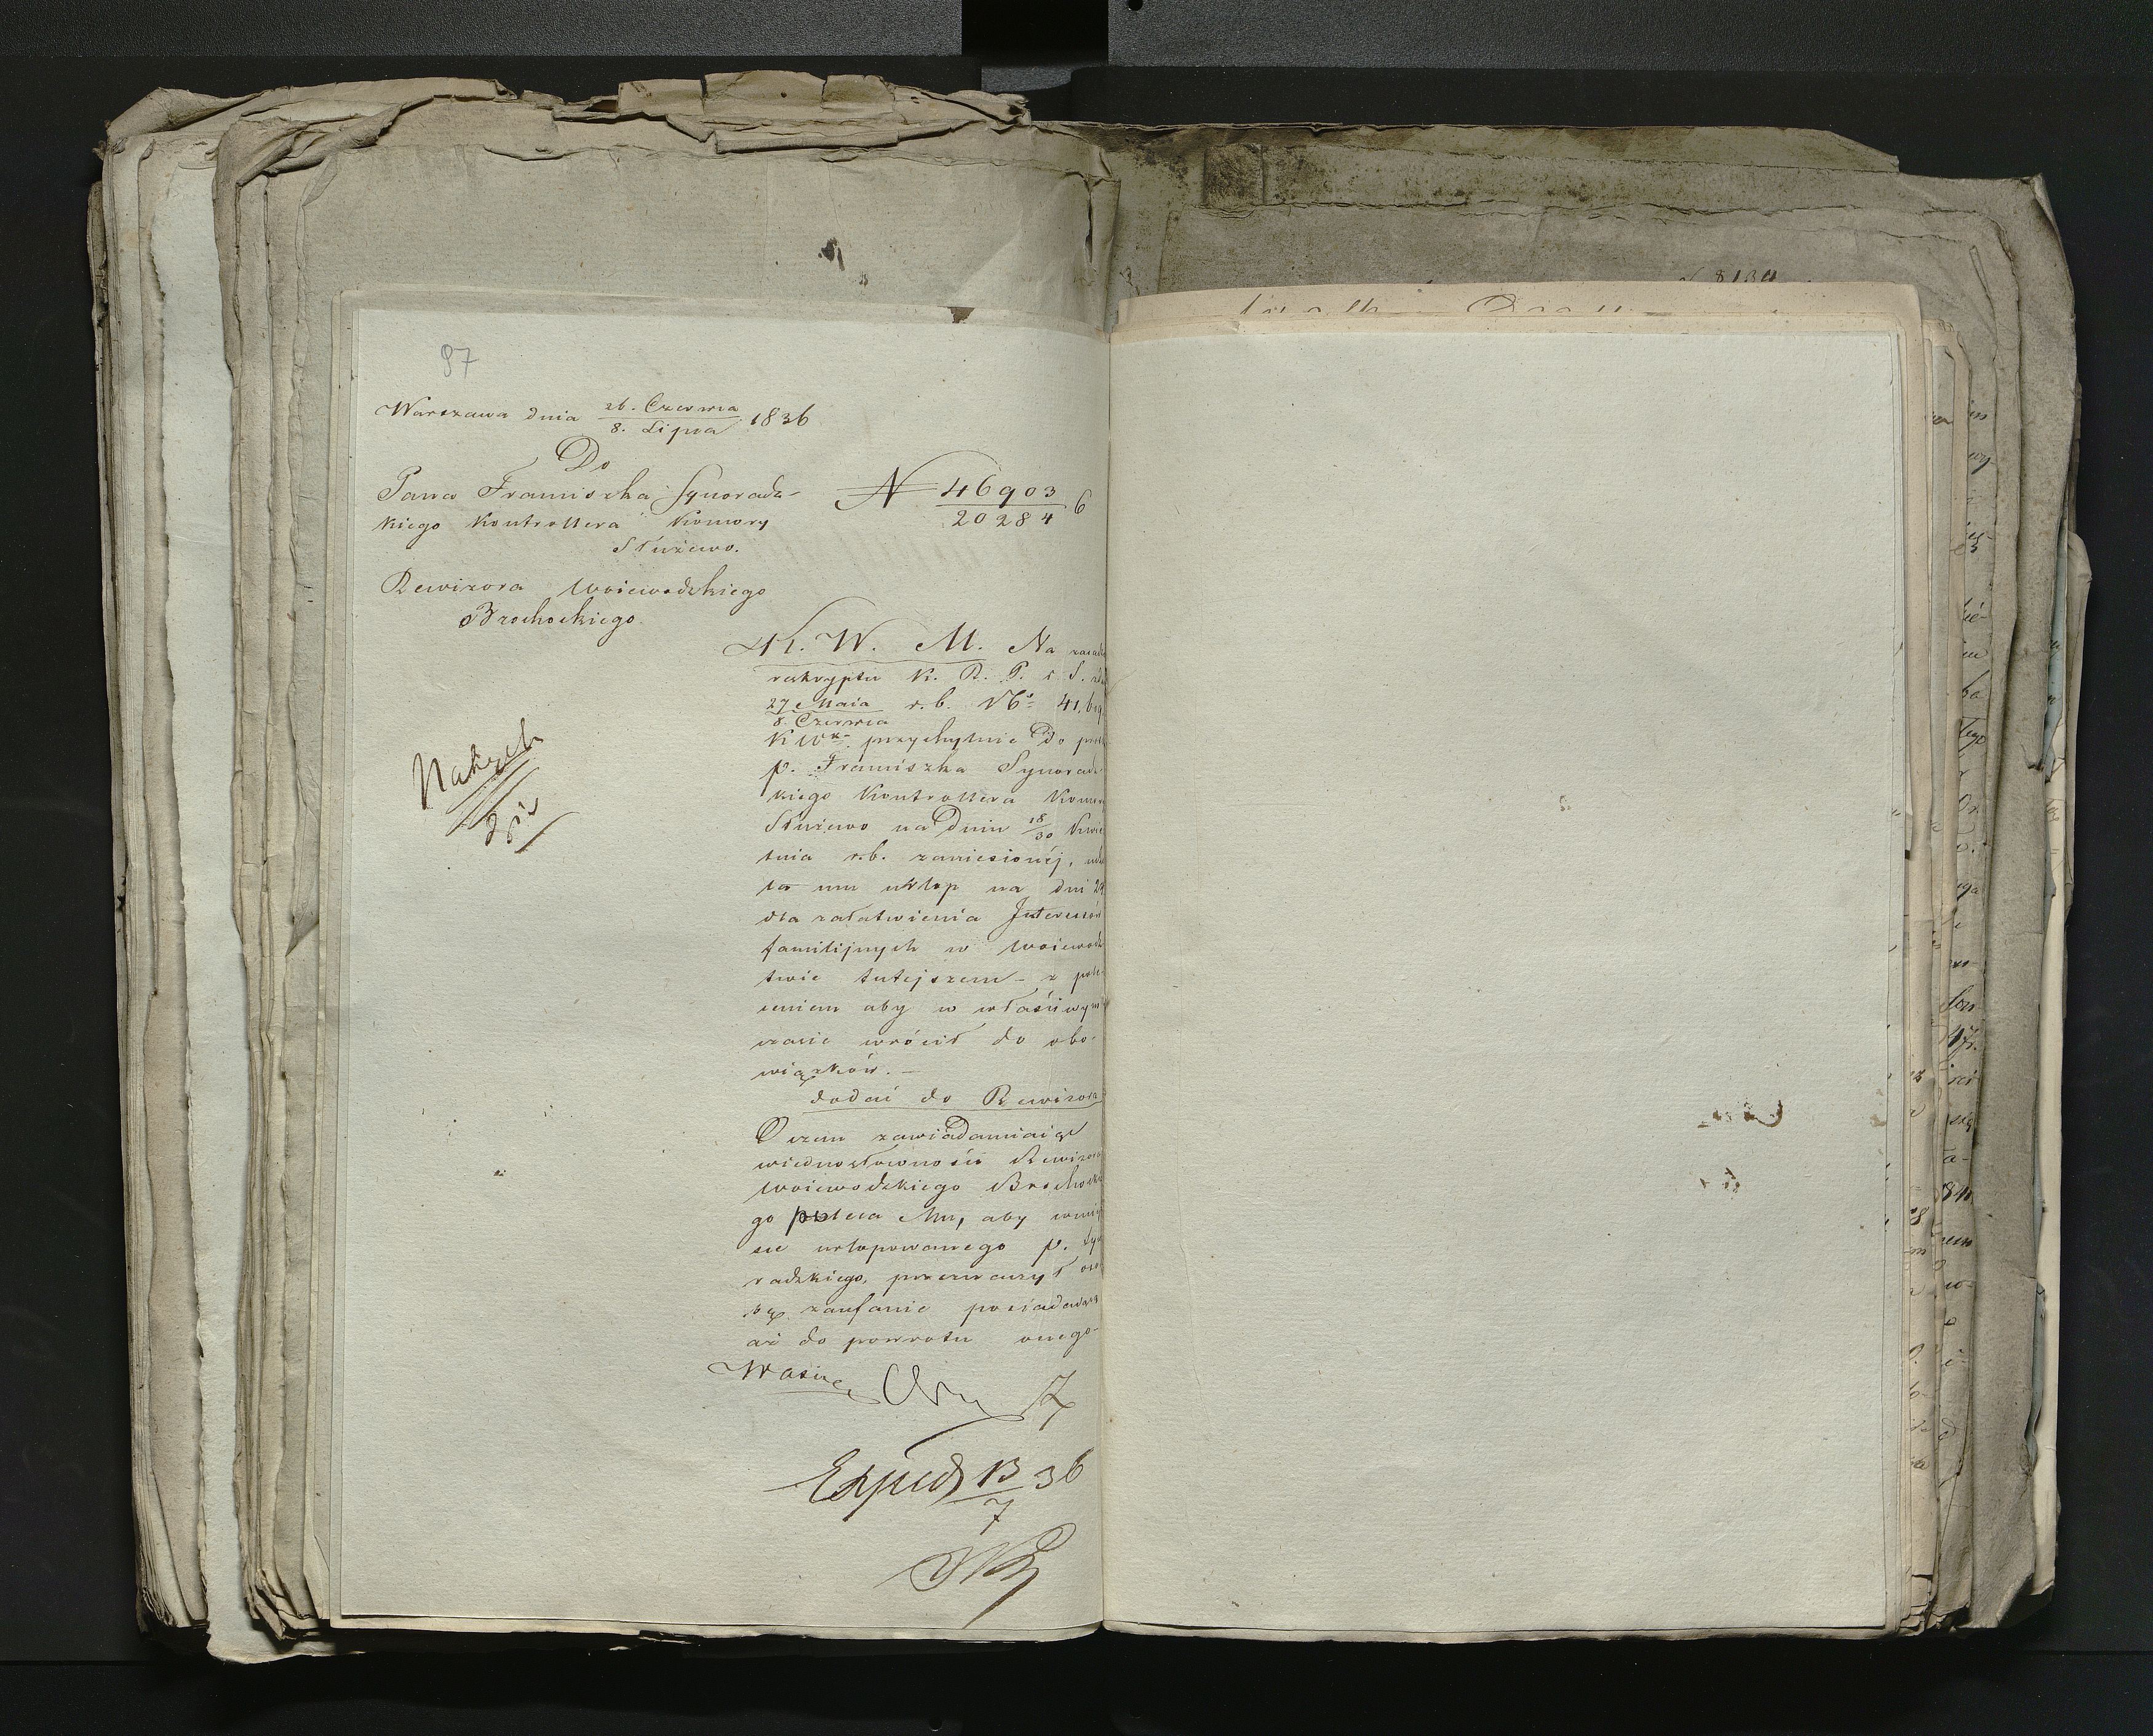 97
Warszawa dnia 26. Czerwca / 8. Lipca 1836
Do
Pana Franciszka Synoradz-
kiego Kontrollera Komory
Służewo.
N 46903 / 20284 6
Rewizora Woiewodzkiego
Brochockiego.
K. W. M. Na zasad
reskryptu K. R. P. i S. z d
27 Maia / 8. Czerwca r.b. No 41,
K Wa. przychylnie do
p. Franciszka Synoradz
kiego Kontrollera Komo
Służewo na dniu 18/30 Kwie
tnia r.b. zaniesionéj, udz
la mu urlop na dni 29
dla załatwienia Interessów
familijnych w Woiewodz
twie tutejszem - z pole-
ceniem aby w właściwym
czasie wrócił do obo-
wiązków. -
dodać do Rewizora
O czem zawiadamiaiąc
wiednosłowności Rewizora
Woiewodzkiego Brochockie
go poleca Mu, aby w miey
sce urlopowanego p. Syno
radzkiego, przeznaczył oso
bę zaufanie posiadaiącą
aż do powrotu onego
Expeds 13/7 36
N 8134